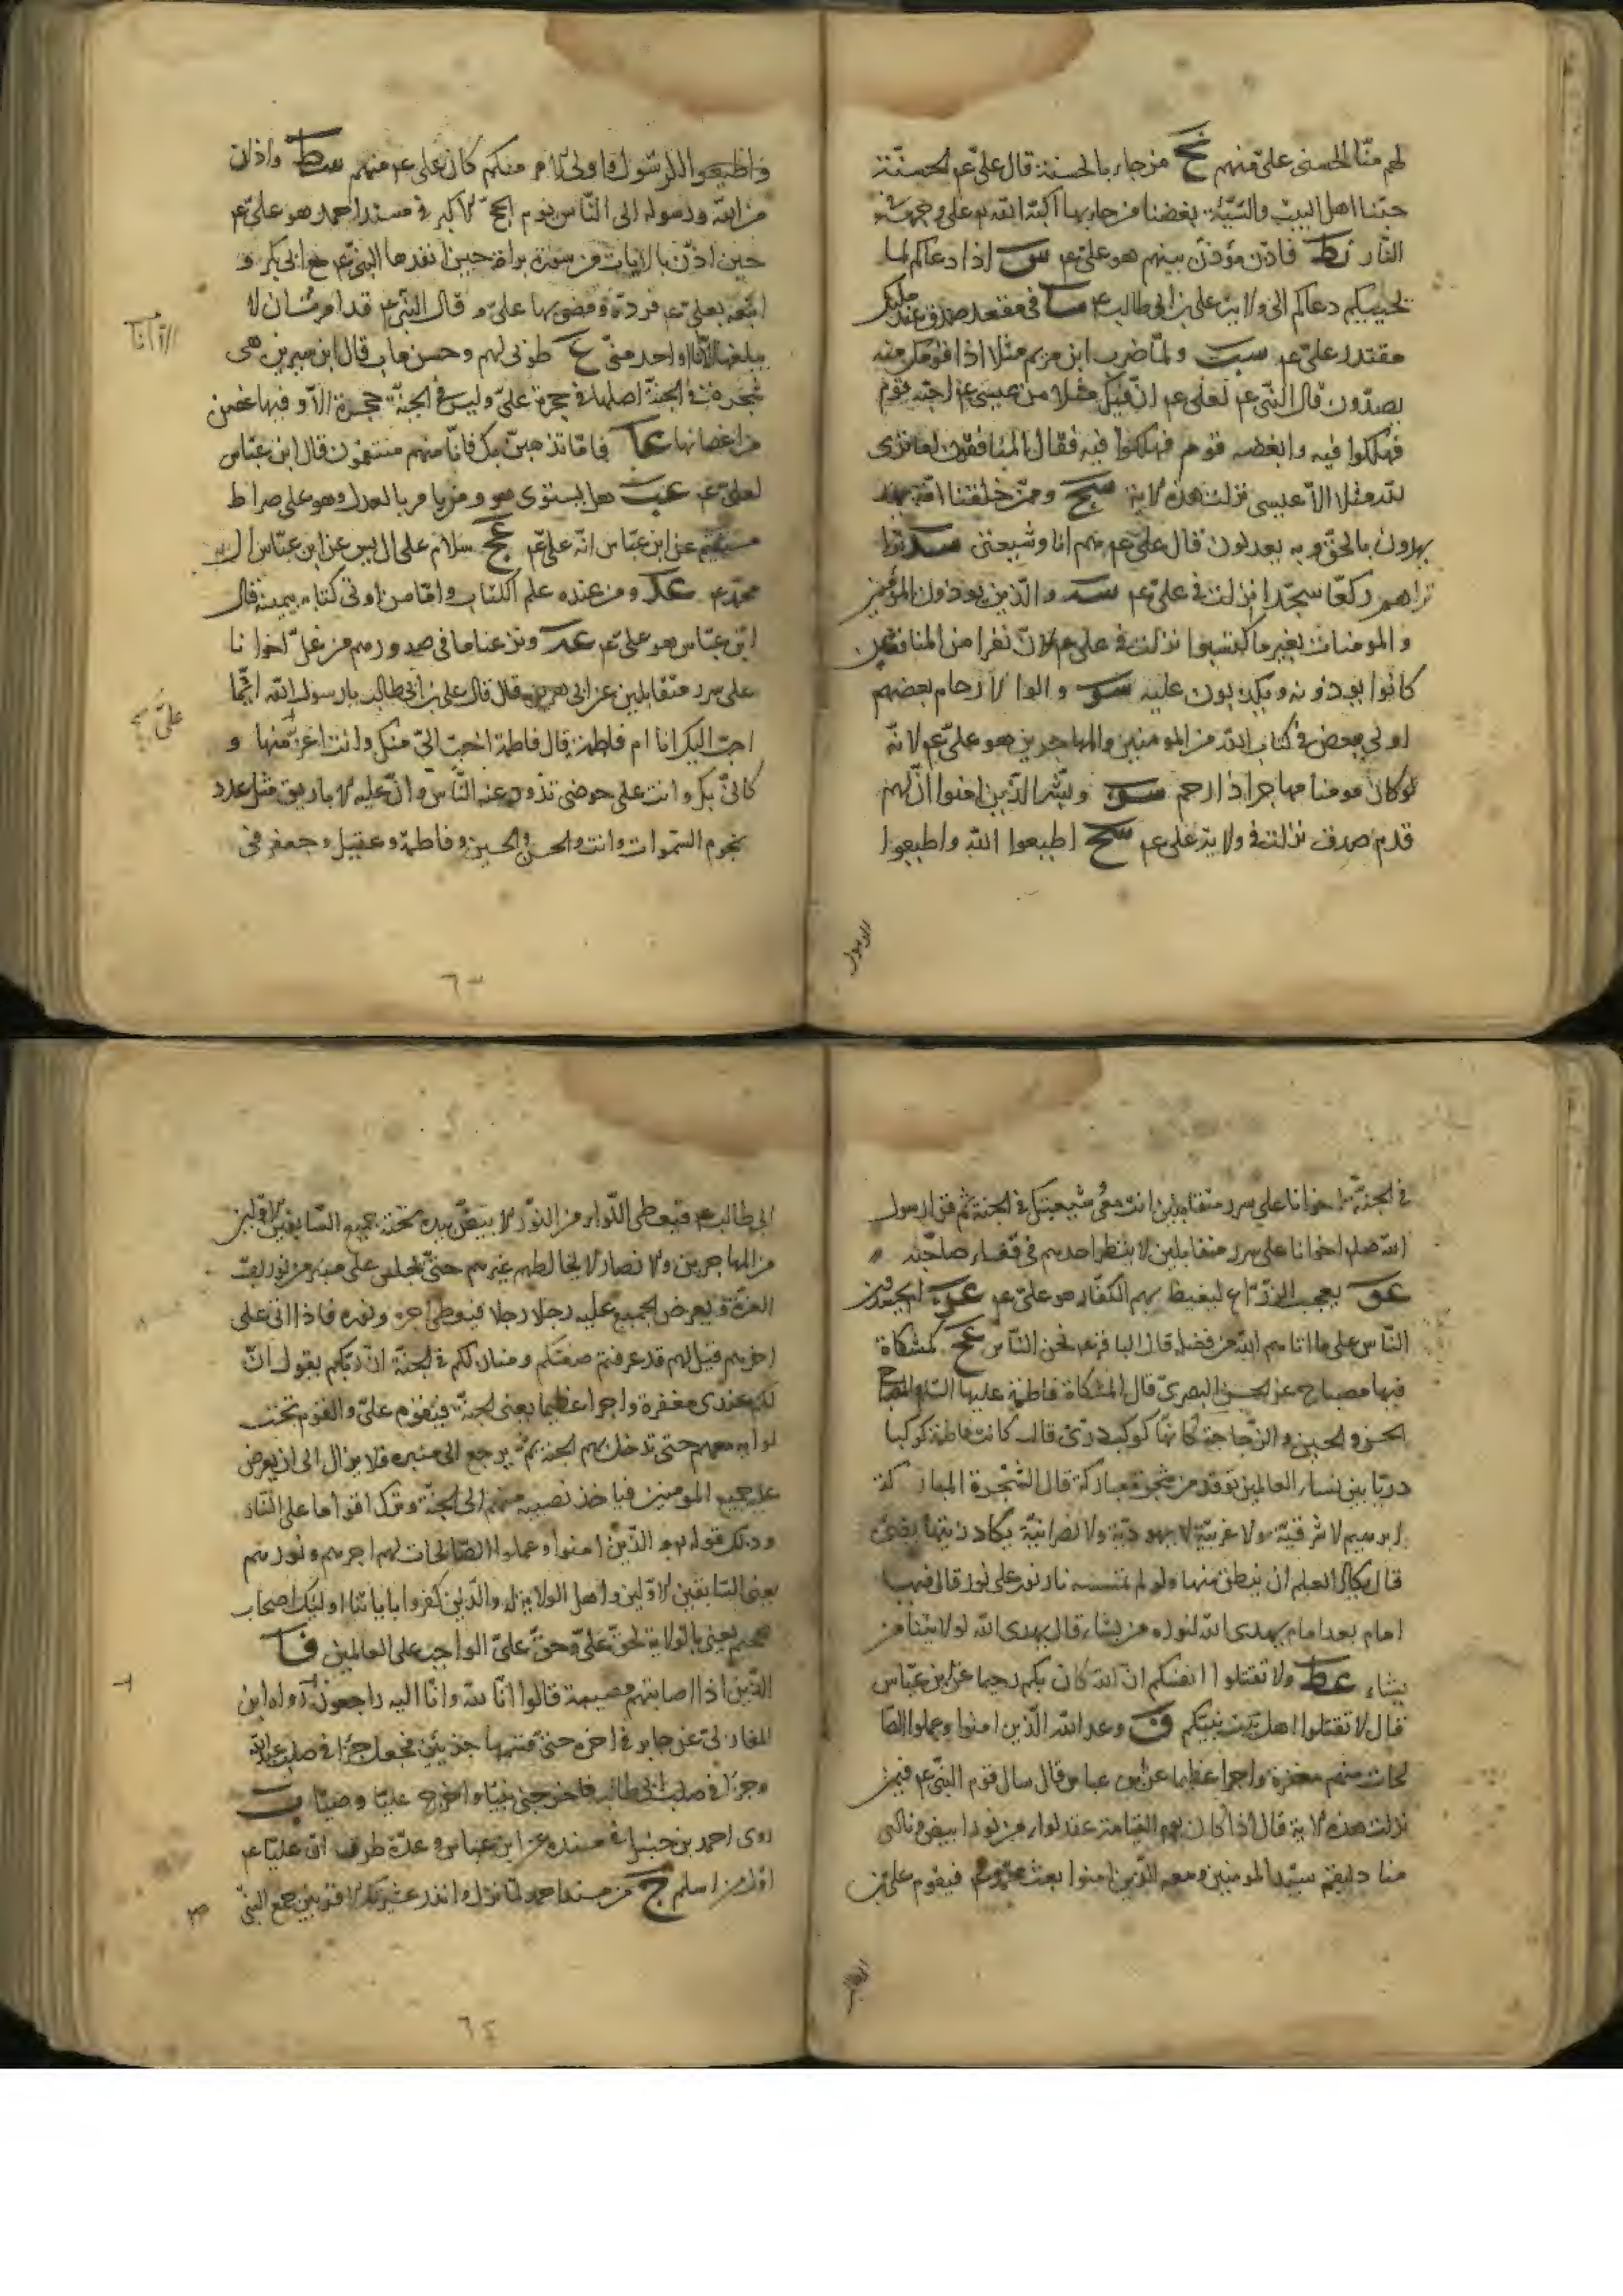 لهم منّا الحسنى علىّ منهم نح من جاء بالحسنة قال علىّ عم الحسنة
حبّنا اهل البيت والسّيّئة بغضنا من جاء بها اكبّه الله على وجهه فى
النّار نط فاذّن مؤذّن بينهم هو علىّ عم س اذا دعاكم لما
يحييكم دعاكم الى ولاية على بن ابى طالب عم سا فى مقعد صدق عند مليك
مقتدر علىّ عم سب ولمّا ضرب ابن مريم مثلا اذا قومك منه
يصدّون قال النّبى عم لعلى عم انّ فيك مثلا من عيسى عم احبّه قوم
فهلكوا فيه وابغضه قوم فهلكوا فيه فقال المنافقون اما ترى
له مثلا الاّ عيسى نزلت هذه الاية سج وممّن خلقنا امّة
يهدون بالحقّ وبه يعدلون قال علىّ عم هم انا وشيعتى سد
تراهم ركّعا سجّدا نزلت فى علىّ عم سه والّذين يوذون المؤمنين
والمومنات بغير ما اكتسبوا نزلت فى على عم لانّ نفرا من المنافقين
كانوا يوذونه ويكذبون عليه سو والوا الارحام بعضهم
اولى ببعض فى كتاب الله من المومنين والمهاجرين هو علىّ عم لانّه
كان مومنا مهاجرا ذا رحم سز وبشّر الّذين امنوا انّ لهم
قدم صدق نزلت فى ولاية على عم سح اطيعوا الله واطيعوا
الرسول
واطيعوا الرّسول واولى الامر منكم كان على عم منهم سط واذان
من الله ورسوله الى النّاس يوم الحجّ الاكبر فى مسند احمد هو علىّ عم
حين اذّن بالايات من سورة براة حين انفدها النبىّ عم مع ابى بكر و
اتبعه بعلىّ عم فردّه ومضى بها علىّ و قال النّبىّ عم قد امرت ان لا
يبلغها الاّ انا او احد منّى ع طوبى لهم وحسن ماب قال ابن سيرين هى
شجرة فى الجنّة اصلها فى حجرة علىّ وليس فى الجنّة حجرة الاّ وفيها غصن
من اغصانها عا فامّا نذهبنّ بك فانّا منهم منتقمون قال ابن عبّاس
لعلىّ عم عب هل يستوى هو ومن يامر بالعدل وهو على صراط
مستقيم عن ابن عبّاس انّه علىّ عم عج سلام على ال يس عن ابن عبّاس ال
محمّد عم عد ومن عنده علم الكتاب وامّا من اوتى كتابه بيمينه قال
ابن عبّاس هو علىّ عم عه ونزعنا ما فى صدورهم من غلّ اخوانا
على سرر متقابلين عن ابى هريرة قال قال على بن ابى طالب يا رسول الله ايّما
احبّ اليك انا ام فاطمة قال فاطمة احبّ الىّ منك وانت اعزّ منها و
كانّى بك وانت على حوضى تذود عنه النّاس وانّ عليه الاباريق مثل عدد
نجوم السّموات وانت والحسن والحسين وفاطمة وعقيل وجعفر فى
الاّ انا
علىّ
٦٣
فى الجنّة اخوانا على سرر متقابلين انت معى وشيعتك فى الجنة ثمّ قرا رسول
الله صلم اخوانا على سرر متقابلين لا ينظر احدهم فى قفاء صاحبه
عو يعجب الزّرّاع ليغيظ بهم الكفّار هو علىّ عم عز ام يحسدون
النّاس على ما اتاهم الله من فضله قال الباقر عم نحن النّاس عح كمشكاة
فيها مصباح عن الحسن البصرىّ قال المشكاة فاطمة عليها السّلم والمصباح
الحسن والحسين والزّجاجة كانّها كوكب درّىّ قال كانت فاطمة كوكبا
درّيّا بين نساء العالمين توقد من شجرة مباركة قال الشّجرة المباركة
ابرهيم لا شرقيّة ولا غربيّة لا يهوديّة ولا نصرانيّة يكاد زيتها يضىء
قال يكاد العلم ان ينطق منها ولو لم تمسسه نار نور على نور قال فيها
امام بعد امام يهدى الله لنوره من يشاء قال يهدى الله لولايتنا من
يشاء عط ولا تقتلوا انفسكم انّ الله كان بكم رحيما عن ابن عبّاس
قال لا تقتلوا اهل بيت نبيّكم ف وعد الله الّذين امنوا وعملوا الصّا
لحات منهم مغفرة واجرا عظيما عن ابن عباس قال سال قوم النبىّ عم فيمن
نزلت هذه الاية قال اذا كان يوم القيامة عقد لواء من نور ابيض ونادى
مناد ليقم سيّد المومنين ومعه الّذين امنوا ببعث محمّد عم فيقوم على بن
ابى طالب عم فيعطى اللّواء من النّور الابيض بيده تحته جميع السّابقين الاوّلين
من المهاجرين والانصار لا يخالطهم غيرهم حتّى يجلس على منبر من نور ربّ
العزّة ويعرض الجميع عليه رجلا رجلا فيعطى اجره ونوره فاذا اتى على
اخرهم قيل لهم قد عرفتم صفتكم ومنازلكم فى الجنّة انّ ربّكم يقول انّ
لكم عندى مغفرة واجرا عظيما يعنى الجنّة فيقوم علىّ والقوم تحت
لوائه معهم حتى يدخل بهم الجنة ثمّ يرجع الى منبره فلا يزال الى ان يعرض
عليه جميع المومنين فياخذ نصيبه منهم الى الجنّة وينزل اقواما على النّار
وذلك قوله والّذين امنوا وعملوا الصّالحات لهم اجرهم ونورهم
يعنى السّابقين الاوّلين واهل الولاية والّذين كفروا باياتنا اوليك اصحاب
الجحيم يعنى بالولاية لحقّ علىّ وحقّ علىّ الواجب على العالمين فا
الّذين اذا اصابتهم مصيبة قالوا انّا لله وانّا اليه راجعون رواه ابن
المغازلى عن جابر فى اخره حتى قسمها جزئين فجعل جزءا فى صلب عبد الله
وجزءا فى صلب ابى طالب فاخرجنى نبيّا واخرج عليّا وصيّا ب
روى احمد بن حنبل فى مسنده عن ابن عباس وعدّة طرق انّ عليّا عم
اوّل من اسلم ج من مسند احمد لمّا نزل وانذر عشيرتك الاقربين جمع النّبىّ
٦٤